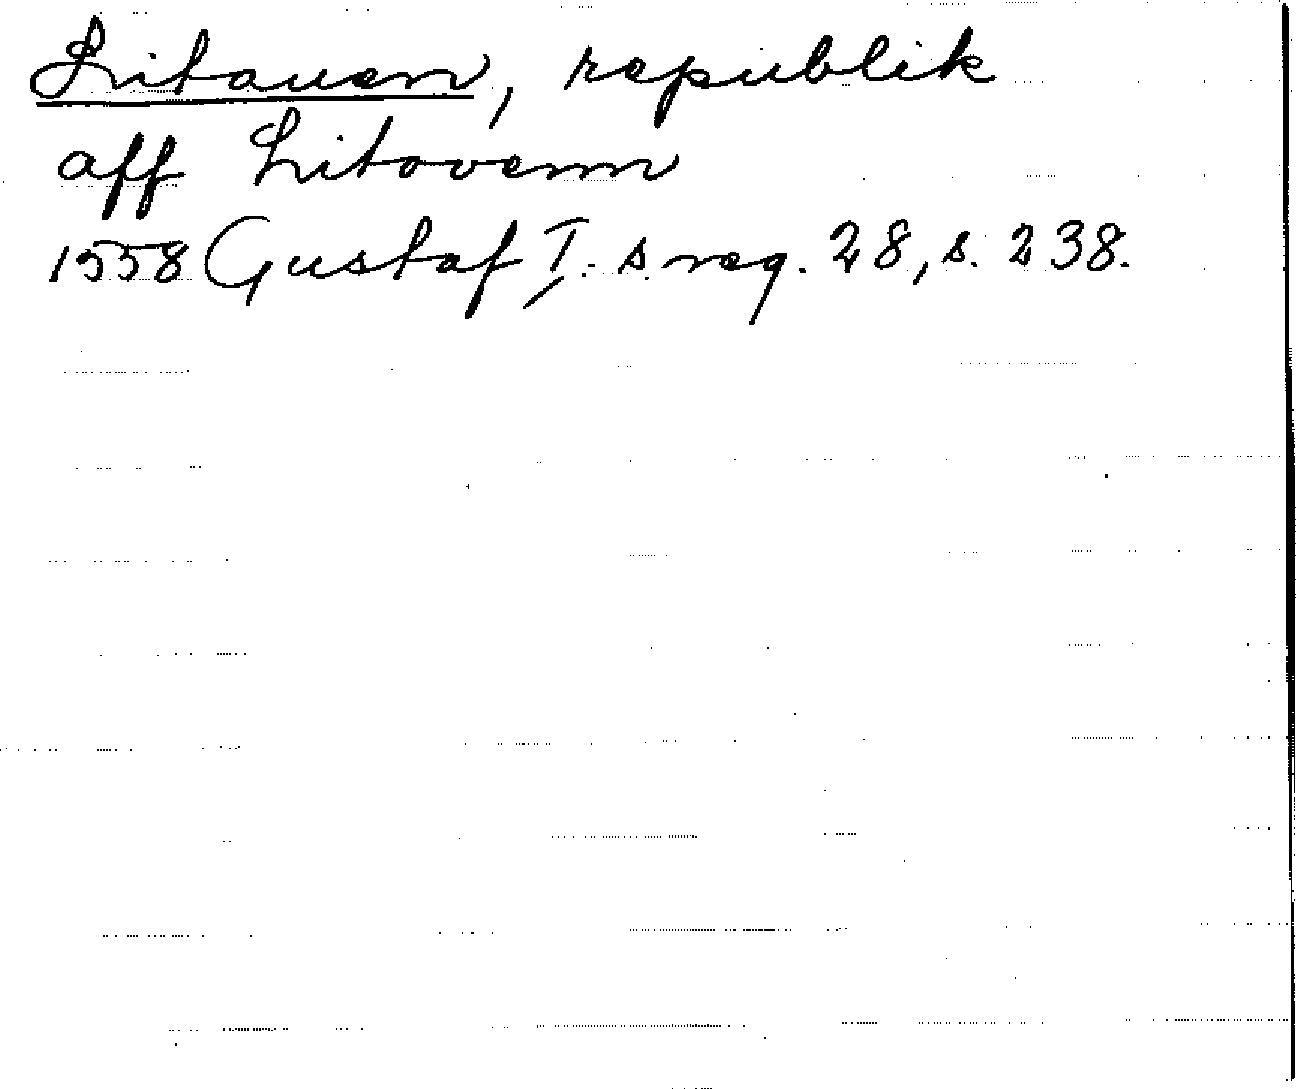 Litauen, republik
aff Litovenn
1558 Gustaf I. s. reg. 28, s. 238.